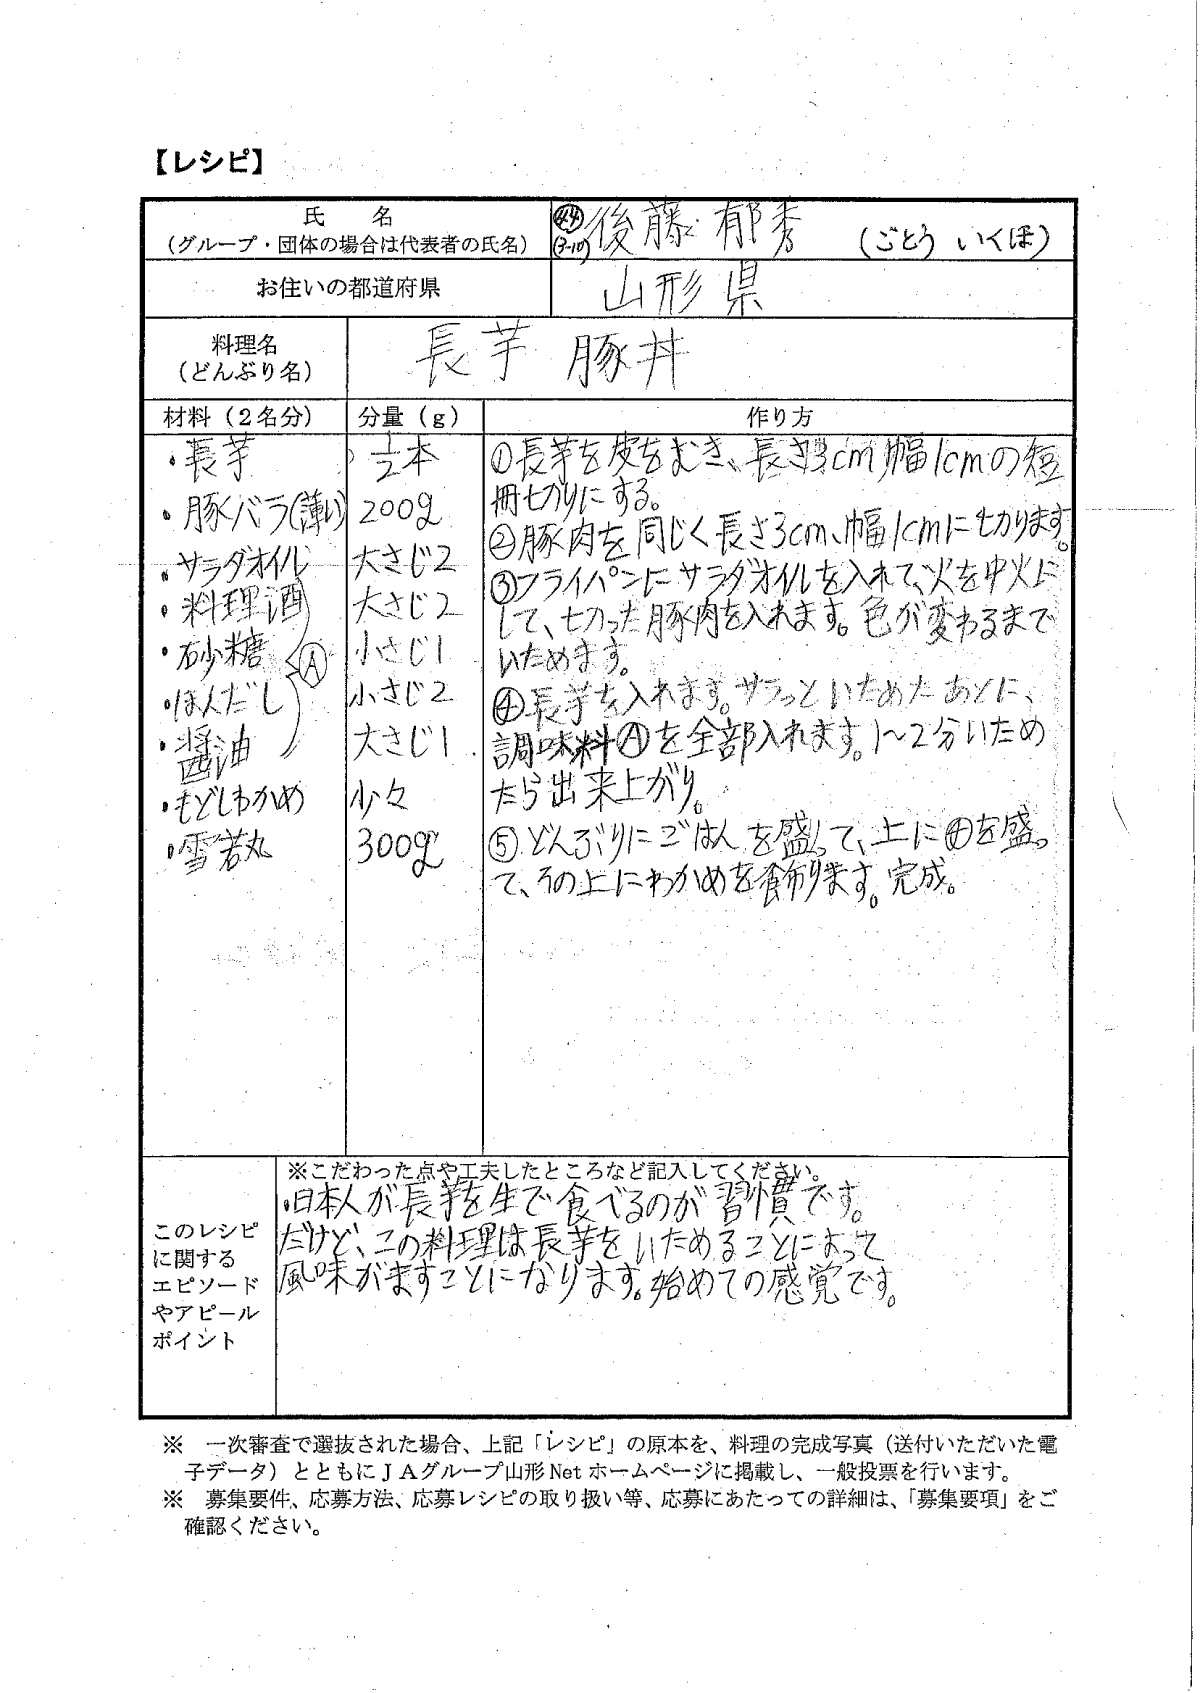 【レシピ】
氏　名
（グループ・団体の場合は代表者の氏名）
㊹ 後藤 郁秀 （ごとう いくほ）
(3-10)
お住いの都道府県
山形県
料理名
（どんぶり名）
長芋 豚丼
材料（２名分）
分量（ｇ）
作り方
・長芋
1/2本
・豚バラ(薄い)
200g
・サラダオイル
大さじ2
・料理酒
大さじ2
・砂糖
小さじ1
Ⓐ
・ほんだし
小さじ2
・醤油
大さじ1
・もどしわかめ
少々
・雪若丸
300g
①長芋を皮をむき、長さ3cm,幅1cmの短
冊切りにする。
②豚肉を同じく長さ3cm、幅1cmに切ります。
③フライパンにサラダオイルを入れて、火を中火に
して、切った豚肉を入れます。色が変わるまで
いためます。
④長芋を入れます。サラっといためたあとに、
調味料Ⓐを全部入れます。1～2分いため
たら出来上がり。
⑤どんぶりにごはんを盛って、上に④を盛っ
て、その上にわかめを飾ります。完成。
このレシピ
に関する
エピソード
やアピール
ポイント
※こだわった点や工夫したところなど記入してください。
・日本人が長芋を生で食べるのが習慣です。
だけど、この料理は長芋をいためることによって
風味がますことになります。始めての感覚です。
※　一次審査で選抜された場合、上記「レシピ」の原本を、料理の完成写真（送付いただいた電
子データ）とともにＪＡグループ山形 Net ホームページに掲載し、一般投票を行います。
※　募集要件、応募方法、応募レシピの取り扱い等、応募にあたっての詳細は、「募集要項」をご
確認ください。